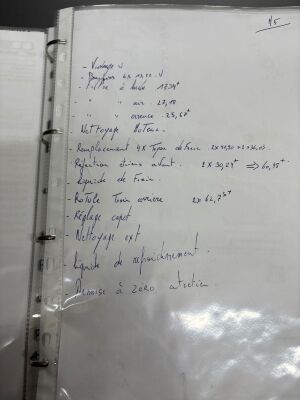 1/5
- Vidange √
- Bougies 4 x 13,10 √
- Filtre à huile 17,34 +
- " " air 27,18
- " " essence 25,68 +
- Nettoyage Moteur.
- Remplacement 4 x Type de Frein
Réfection étriers avant. 2 x 30,24 + => 60,48 +
- Liquide de Frein.
- Rotule Train arrière 2 x 64,75 +
- Réglage capot
- Nettoyage ext.
- Liquide de refroidissement.
- Remise à ZERO entretien.